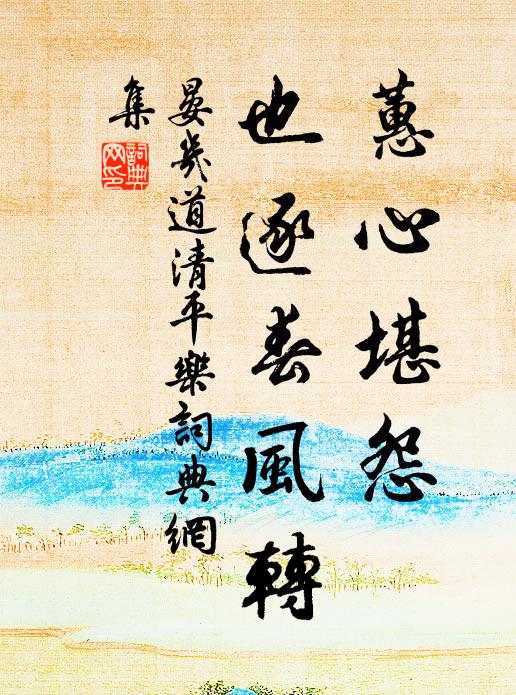 蕙心堪怨
也逐春風轉
晏幾道清平樂詞典網
集
詞典网印